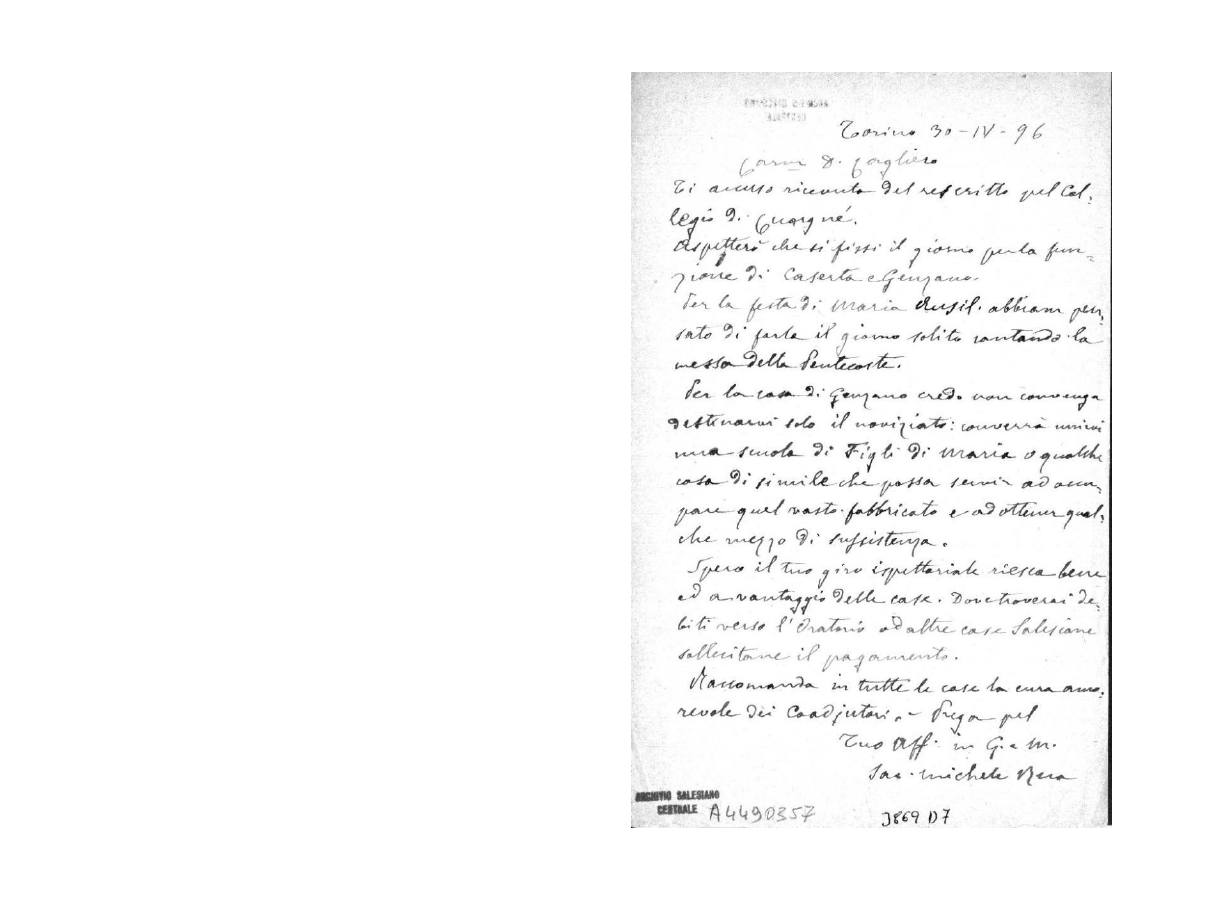 Torino 30-IV-96
Carm D. Cagliero
Ti accuso ricevuta del rescritto pel Col-
legio di Cuorgné.
Aspetterò che si fissi il giorno per la fun-
zione di Caserta e Genzano.
Per la festa di Maria Ausil. abbiam pen-
sato di farla il giorno solito cantando la
messa della Pentecoste.
Per la casa di Genzano credo non convenga
destinarvi solo il noviziato: converrà unirvi
una scuola di Figli di Maria o qualche
cosa di simile che possa servir ad occu-
pare quel vasto fabbricato e ad ottener qual-
che mezzo di sussistenza.
Spero il tuo giro ispettoriale riesca bene
ed a vantaggio delle case. Dove troverai de-
biti verso l'Oratorio od altre case Salesiane
sollecitane il pagamento.
Raccomanda in tutte le case la cura amo-
revole dei Coadjutori. - Prega pel
Tuo Aff. in G. e M.
Sac. Michele Rua
ARCHIVIO SALESIANO
CENTRALE
A4490357
3869 D7